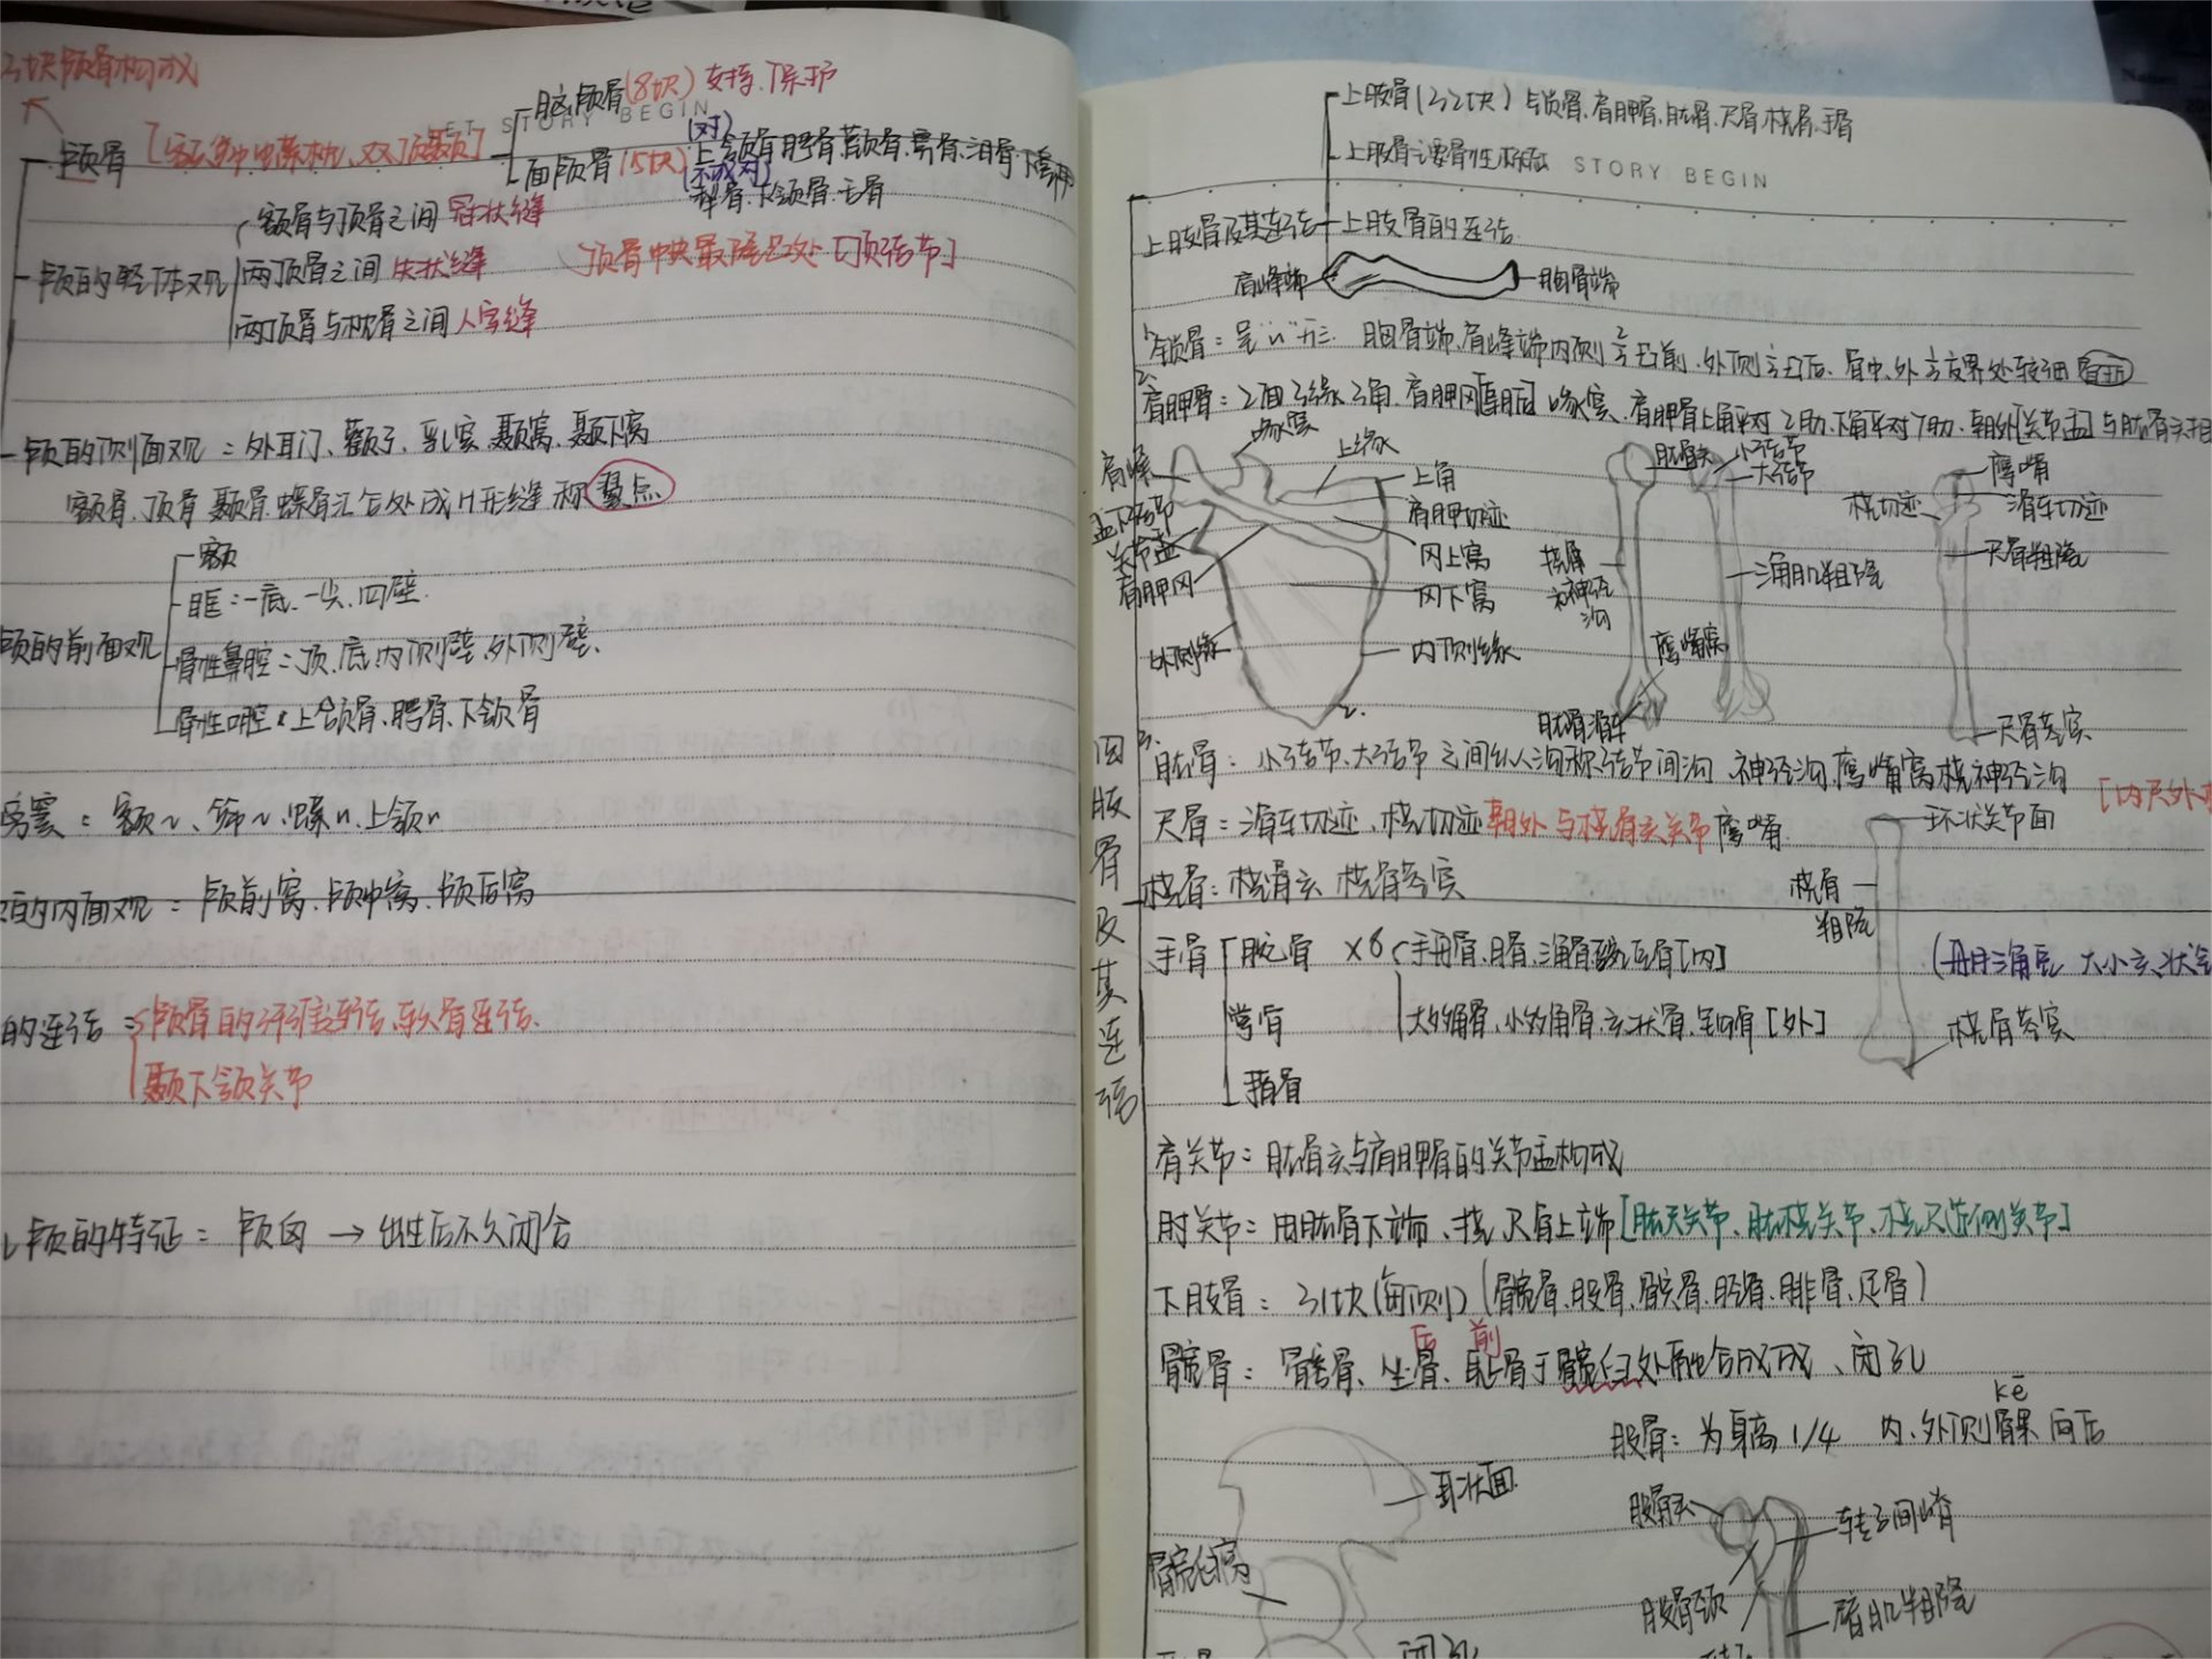 块颅骨构成
脑颅骨(8块) 支持.保护
LET STORY BEGIN
颅骨[额筛蝶枕、双顶颞]
面颅骨15块
(对)
上颌骨.腭骨.颧骨.鼻骨.泪骨.下鼻甲
(不成对)
犁骨.下颌骨.舌骨
颅的整体观
额骨与顶骨之间 冠状缝
两顶骨之间 矢状缝
顶骨中央最隆凸处[顶结节]
两顶骨与枕骨之间 人字缝
颅的侧面观:外耳门、颧弓、乳突.颞窝.颞下窝
额骨.顶骨.颞骨.蝶骨汇合处成H形缝 称 翼点
颅的前面观
额
眶:一底.一尖.四壁.
骨性鼻腔:顶.底.内侧壁.外侧壁.
骨性口腔:上颌骨、腭骨、下颌骨
旁窦:额~、筛~、蝶~、上颌~
的内面观:颅前窝.颅中窝.颅后窝
的连结:颅骨的纤维连结、软骨连结.
颞下颌关节
颅的特征:颅囟→出生后不久闭合
四肢骨及其连结
上肢骨(32块)锁骨.肩胛骨.肱骨.尺骨.桡骨.手骨
上肢骨主要骨性标志 STORY BEGIN
上肢骨及其连结 上肢骨的连结
肩峰端 胸骨端
1、锁骨:呈"~"形. 胸骨端、肩峰端内侧2/3凸前.外侧1/3凸后. 骨中、外1/3交界处较细 骨折
2、肩胛骨:2面3缘3角.肩胛冈 喙突、肩胛骨上角平对2肋、下角平对7肋、朝外[关节盂]与肱骨头相
喙突
上缘
肩峰
上角
盂下结节
肩胛切迹
关节盂
冈上窝
肩胛冈
冈下窝
外侧缘
内侧缘
肱骨头
小结节
大结节
桡神经沟
三角肌粗隆
鹰嘴窝
肱骨滑车
鹰嘴
桡切迹
滑车切迹
尺骨粗隆
尺骨茎突
3、肱骨:小结节、大结节之间纵沟称结节间沟.神经沟.鹰嘴窝.桡神经沟
尺骨:滑车切迹、桡切迹朝外与桡骨头关节 鹰嘴
[内尺外
桡骨:桡骨头 桡骨茎突
环状关节面
桡骨粗隆
桡骨茎突
手骨
腕骨 ×8
手舟骨、月骨、三角骨 豌豆骨[内]
大多角骨、小多角骨、头状骨、钩骨[外]
掌骨
指骨
(舟月三角豆 大小头状
肩关节:肱骨头与肩胛骨的关节盂构成
肘关节:由肱骨下端、桡、尺骨上端[肱尺关节、肱桡关节、桡尺近侧关节]
下肢骨:31块(每侧)(髋骨、股骨、髌骨、胫骨、腓骨、足骨)
后 前
髋骨:髂骨、坐骨、耻骨于髋臼处融合成成、闭孔
kē
股骨:为身高1/4 内、外侧髁向后
耳状面
髋臼窝
闭孔
股骨头
转子间嵴
股骨颈
臀肌粗隆